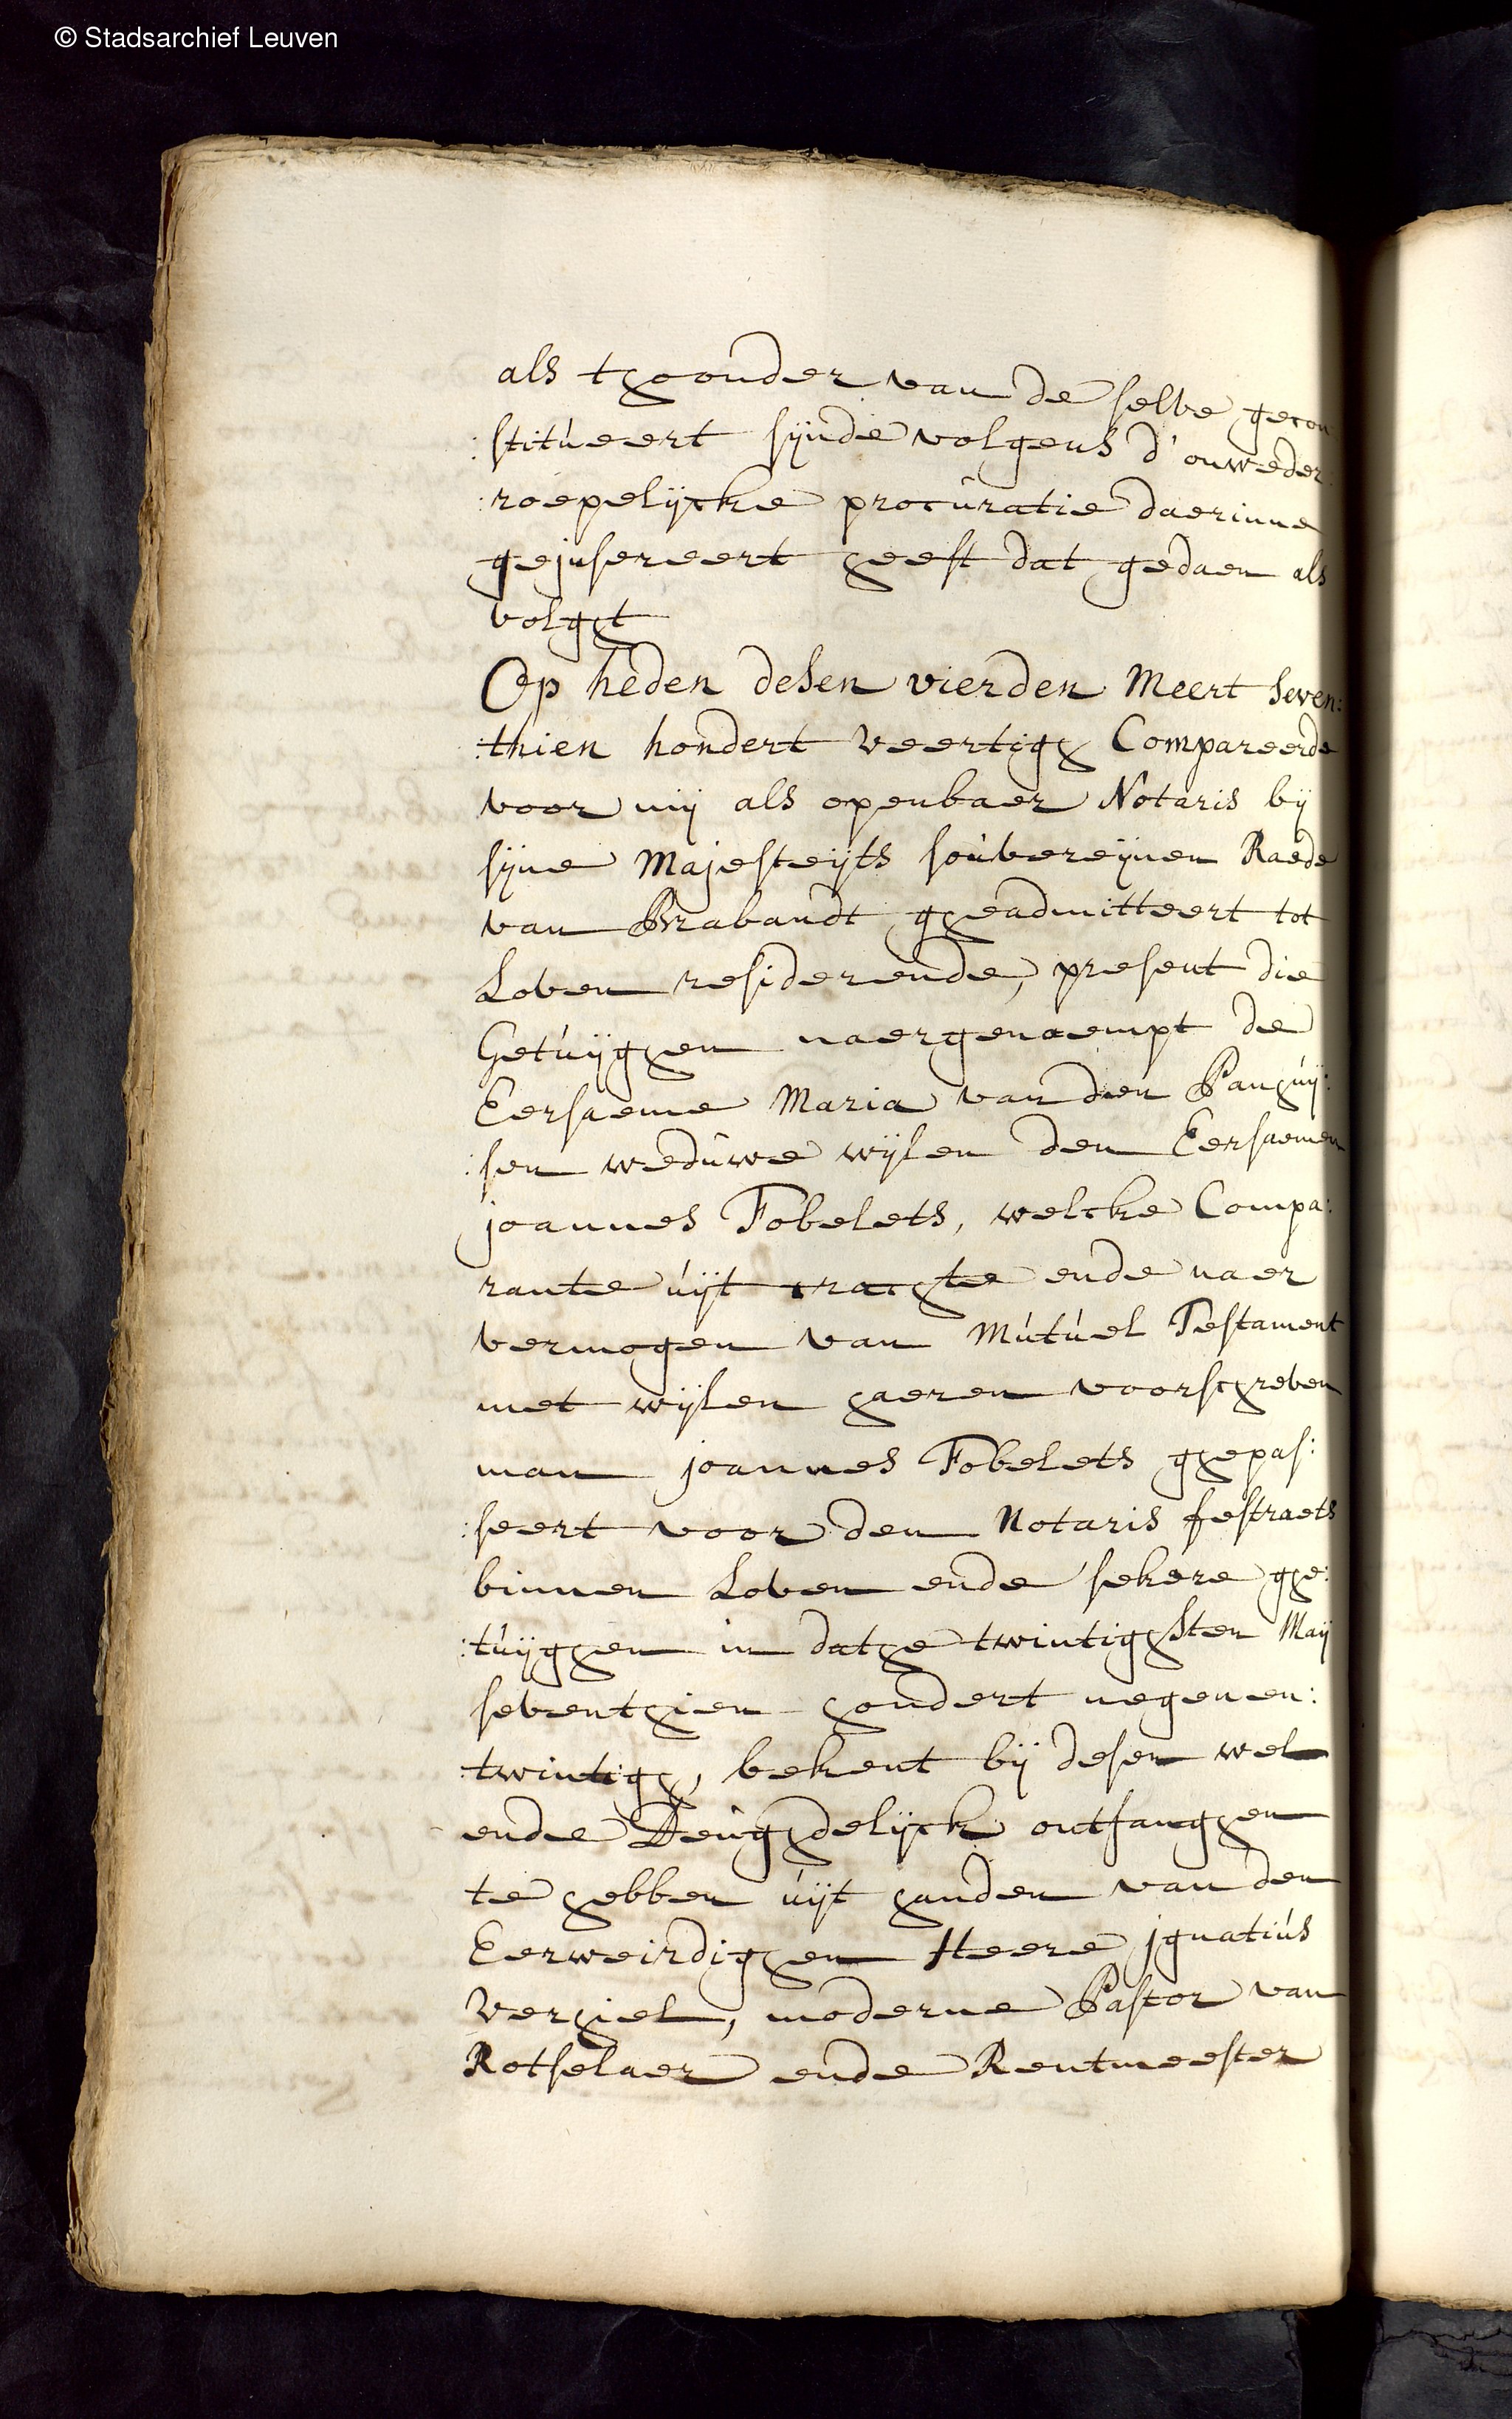 © Stadsarchief Leuven
als thoonder van de selve gecon
:stitueert sijnde volgens d'onweder:
:roepelijcke procuratie daerinne
geinsereert heeft dat gedaen als
volght
Op heden desen vierden Meert seven:
:thien hondert veertigh Compareerde
voor mij als openbaer Notaris bij
sijne Majesteijts souvereijnen Raede
van Brabandt gheadmitteert tot
Loven residerende, present die
Getuijghen naergenoempt de
Eersaeme Maria van den Panhuij:
:sen weduwe wijlen den Eersaemen
joannes Fobelets, welcke Compa:
rante uijt crachte ende naer
vermogen van Mutuel Testament
met wijlen haeren voorschreven
man joannes Fobelets ghepas:
:seert voor den Notaris festraets
binnen Loven ende sekere ghe:
:tuijghen in dathe twintighsten Maij
seventhien hondert negenen:
:twintigh, bekent bij desen wel
ende Deughdelijck ontfanghen
te hebben uijt handen van den
Eerweirdighen Heere jgnatius
Verhiel, moderne Pastor van
Rotselaer ende Rentmeester